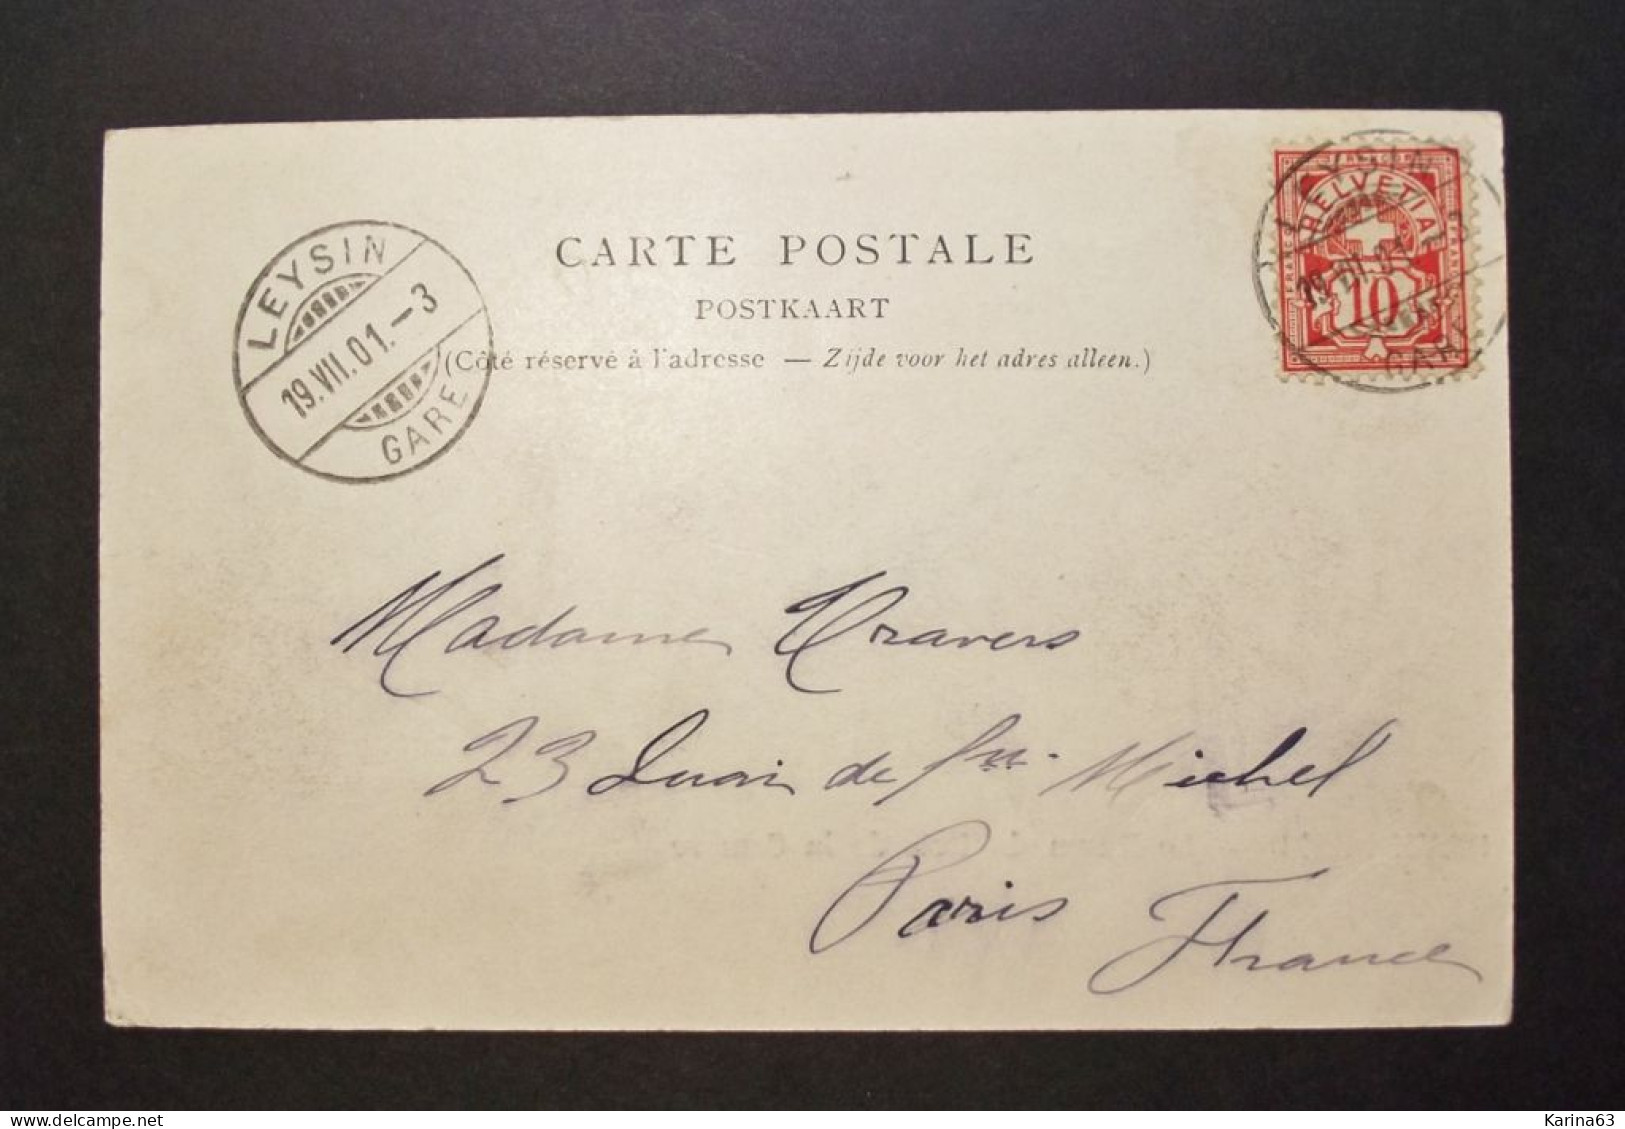 CARTE POSTALE
POSTKAART
(Côté réservé à l'adresse — Zijde voor het adres alleen.)
LEYSIN
19.VII.01.–3
GARE
FRANCO
HELVETIA
FRANCO
10
LEYSIN
19.VII.01.
GARE
Madame Travers
23 Quai de St. Michel
Paris
France
delcampe.net
Karina63